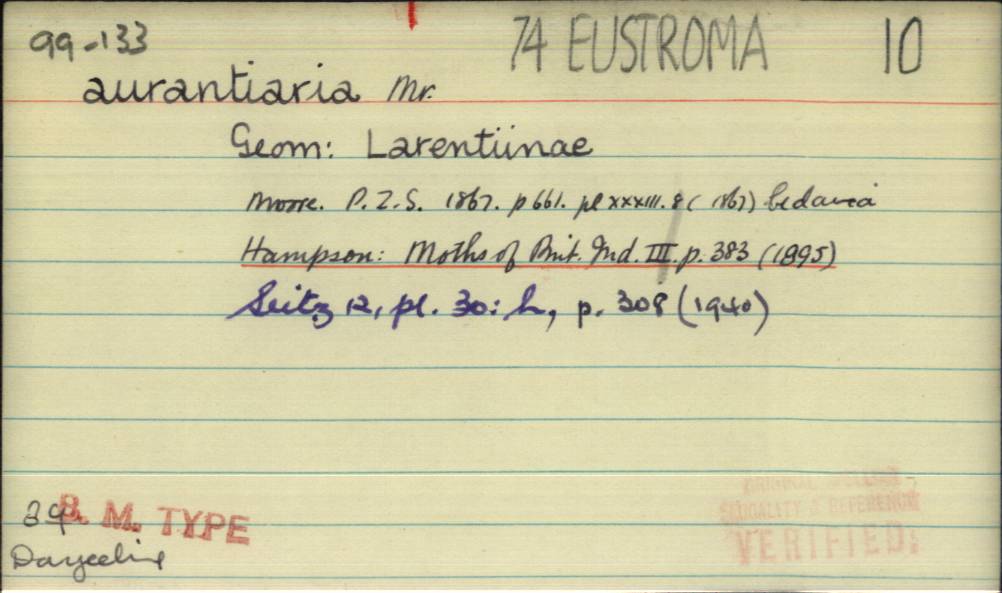 99-133
74 EUSTROMA 10
aurantiaria Mr.
Geom: Larentiinae
Moore. P.Z.S. 1867. p 661. pl XXXIII. 8 (1867)
Hampson: Moths of Brit. Ind. III. p. 383 (1895)
Seitz 12, pl. 30: h, p. 308 (1940)
B. M. TYPE
Darjeeling
ORIGINAL
LOCALITY & REFERENCE
VERIFIED.